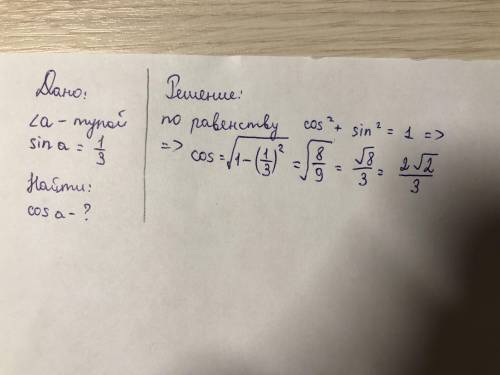 Дано:
∠a - тупой
sin a = 1/3
Найти:
cos a - ?
Решение:
по равенству cos² + sin² = 1 =>
=> cos = √(1-(1/3)²) = √(8/9) = √8/3 = 2√2/3